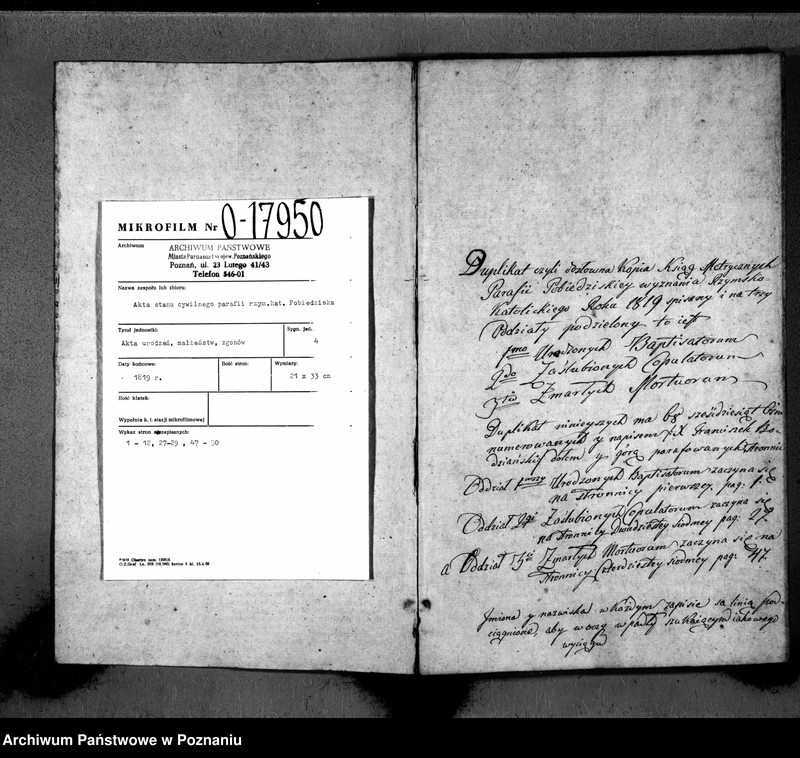 MIKROFILM Nr 0-17950
Archiwum
ARCHIWUM PAŃSTWOWE
Miasta Poznania i Wojew. Poznańskiego
Poznań, ul. 23 Lutego 41/43
Telefon 546-01
Nazwa zespołu lub zbioru:
Akta stanu cywilnego parafii rzym.kat. Pobiedziska
Tytuł jednostki:
Sygn. jed.
Akta urodzeń, małżeństw, zgonów
4
Daty końcowe:
Ilość stron:
Wymiary:
1819 r.
21 x 33 cm
Ilość klatek:
Wypełnia k. t. stacji mikrofilmowej
Wykaz stron niezapisanych:
1 - 12, 27-29 , 47 - 50
Duplikat czyli dosłowna Kopia Xiąg Metrycznych
Parafii Pobiedziskiey wyznania Rzymsko
Katolickiego Roku 1819 spisany i na trzy
Oddziały podzielony to iest
1mo Urodzonych Baptisatorum
2do Zaślubionych Copulatorum
3tio Zmarłych Mortuorum
Duplikat ninieyszych ma 68 sześdziesiąt Ośm
numerowanych y napisem X. Franciszek
dołem y górą parafowanych Stronnic
Oddział 1wszy Urodzonych Baptisatorum zaczyna się
na stronnicy pierwszey. pag: 1.
Oddział 2gi Zaślubionych Copulatorum zaczyna się
na stronnicy Dwudziestey siodmey pag: 27.
a Oddział 3ci Zmarłych Mortuorum zaczyna się na
stronnicy Czterdziestey siodmey pag: 47.
Imiona y nazwiska w każdym zapisie są linią pod-
ciągnione, aby w oczy wpadły szukaiącym iakowego
wyciągu